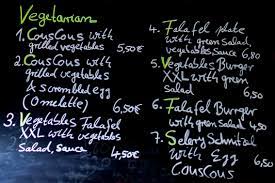 Vegetarian
1. CousCous with
grilled vegetables 5,50€
2. CousCous with
grilled vegetables
& scrambled egg
(Omelette) 6,50€
3. Vegetables Falafel
XXL with vegetables
Salad, Sauce 4,50€
4. Falafel plate
with green Salad,
vegetables Sauce 6,80
5. Vegetables Burger
XXL with green
Salad 6,50
6. Falafel Burger
with green Salad 4,50
7. Selery Schnitzel
with Egg
CousCous 6,50